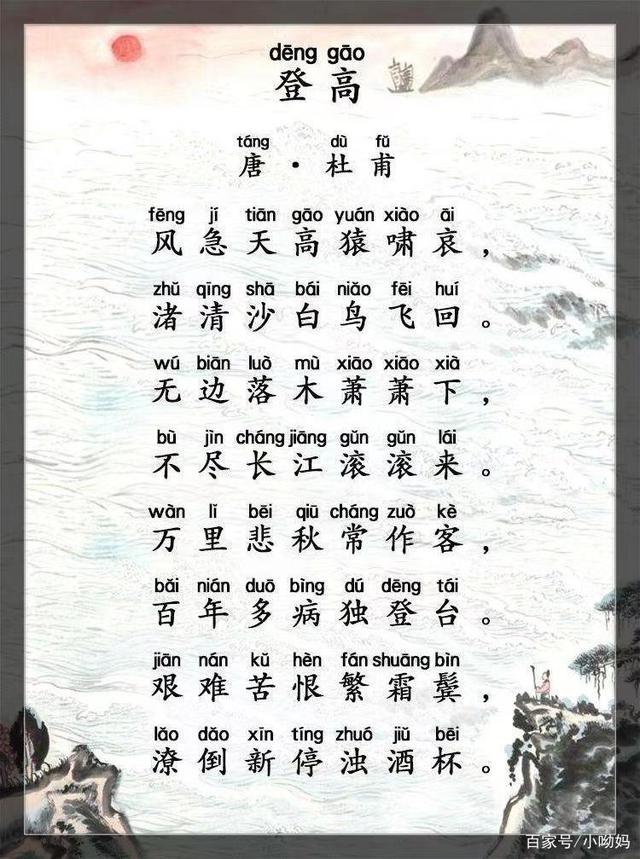 dēng gāo
登高
táng dù fǔ
唐·杜甫
fēng jí tiān gāo yuán xiào āi
风急天高猿啸哀，
zhǔ qīng shā bái niǎo fēi huí
渚清沙白鸟飞回。
wú biān luò mù xiāo xiāo xià
无边落木萧萧下，
bù jìn cháng jiāng gǔn gǔn lái
不尽长江滚滚来。
wàn lǐ bēi qiū cháng zuò kè
万里悲秋常作客，
bǎi nián duō bìng dú dēng tái
百年多病独登台。
jiān nán kǔ hèn fán shuāng bìn
艰难苦恨繁霜鬓，
lǎo dǎo xīn tíng zhuó jiǔ bēi
潦倒新停浊酒杯。
百家号/小呦妈